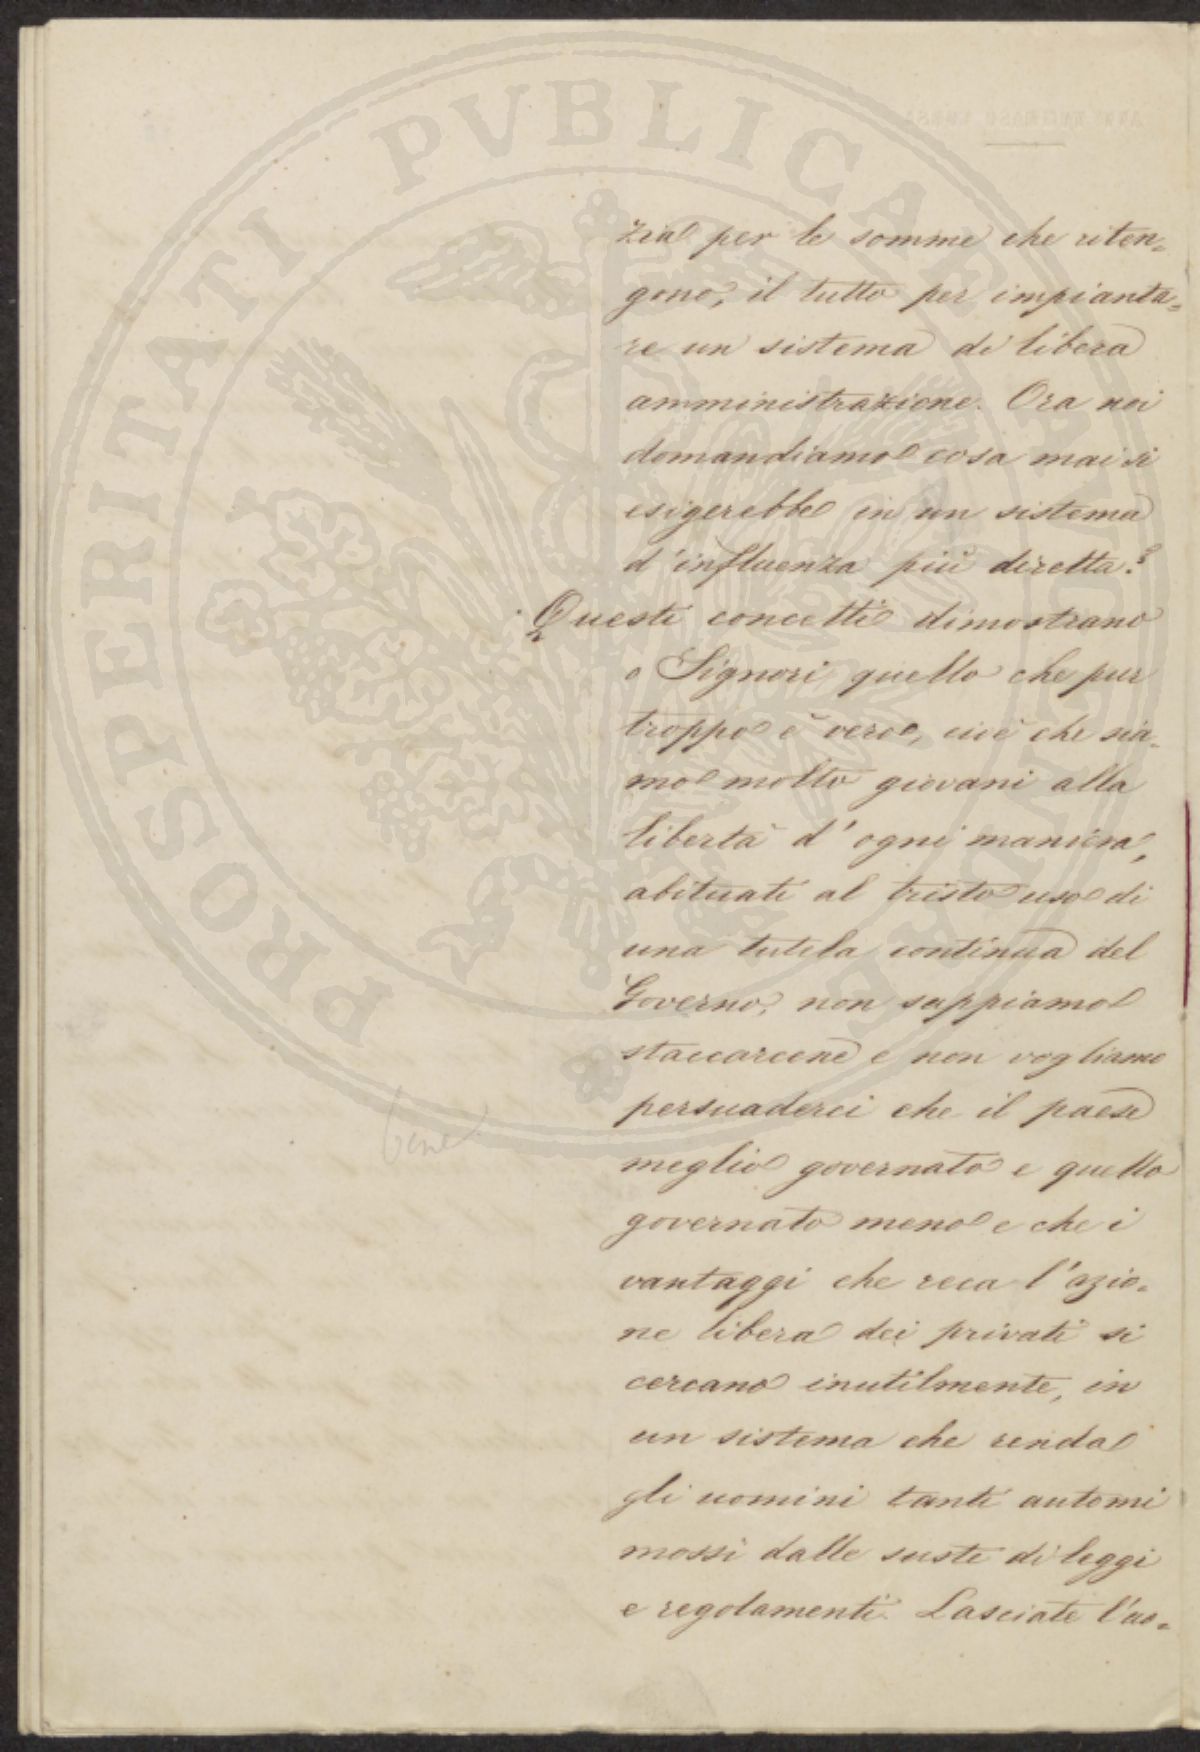 PROSPERITATI PVBLICAE AVGENDAE
zia per le somme che riten=
gono, il tutto per impianta=
re un sistema di libera
amministrazione. Ora noi
domandiamo cosa mai si
esigerebbe in un sistema
d'influenza più diretta?
Questi concetti dimostrano
o Signori, quello che pur
troppo è vero, cioè che sia=
mo molto giovani alla
libertà d'ogni maniera,
abituati al tristo uso di
una tutela continua del
Governo, non sappiamo
staccarcene e non vogliamo
persuaderci che il paese
meglio governato e quello
governato meno e che i
vantaggi che reca l'azio=
ne libera dei privati si
cercano inutilmente, in
un sistema che renda
gli uomini tanti automi
mossi dalle suste di leggi
e regolamenti. Lasciate l'uo=
bene